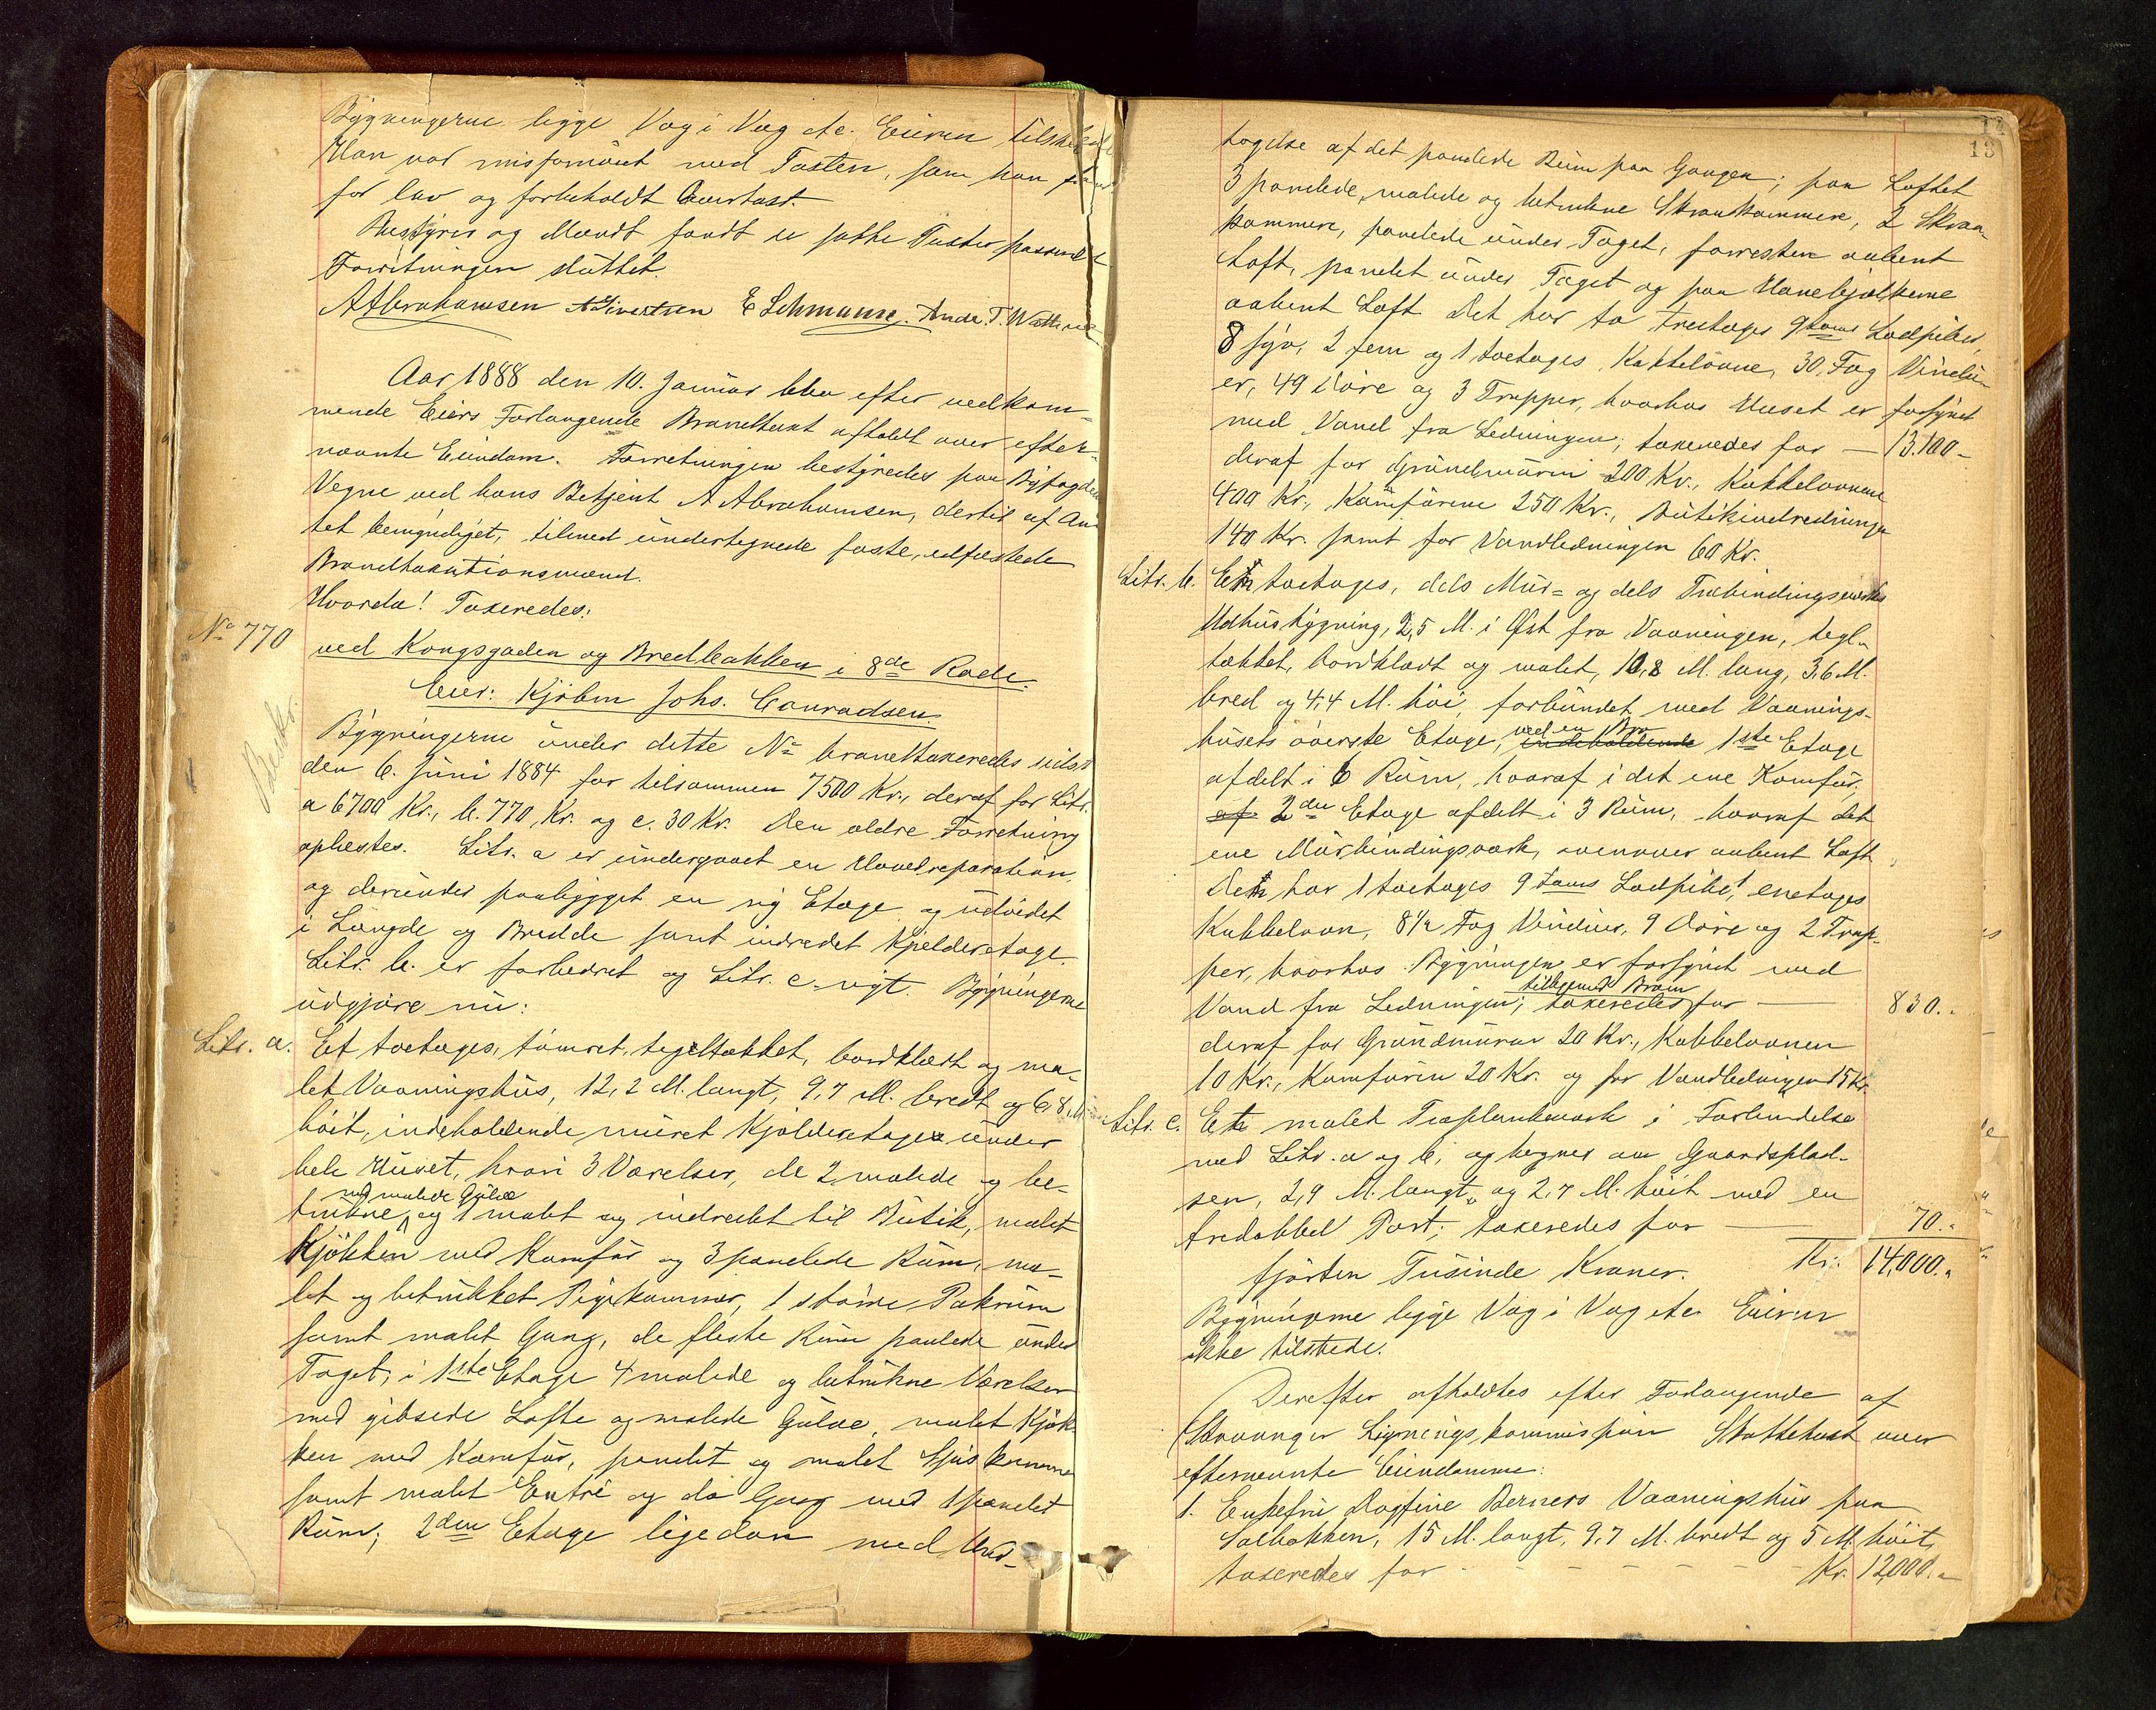 Bygningerne ligge Væg i Væg etc. Eieren tilstede
Han var misfornöiet med Taxten, som han fandt
for lav og forbeholdt Overtaxt.
Bestyrer og Mændt fandt de satte Taxter passende
Forretningen sluttet
AAbrahamsen ASivertsen E Lehmann. Andr. T.
Aar 1888 den 10. Januar blev efter vedkom-
mende Eiers Forlangende Brandtaxt afholdt over efter-
nævnte Eiendom. Forretningen bestyredes paa Byfogdens
Vegne ved hans Betjent A Abrahamsen, dertil af Am-
tet bemyndiget, tilmed undertegnede faste, edfæstede
Brandtaxationsmænd.
Hvorda! Taxeredes:
No 770
ved Kongsgaden og Bredbakken i 8de Rode.
Eier: Kjöbm Johs. Conradsen.
Bygningerne under dette No brandtaxeredes sidst
den 6. Juni 1884 for tilsammen 7500 Kr., deraf for Litr.
a 6700 Kr., b. 770 Kr. og c. 30 Kr. Den ældre Forretning
oplæstes. Litr. a er undergaaet en Hovedreparation,
og derunder paabygget en ny Etage og udvidet
i Længde og Bredde samt indredet Kjelderetage.
Litr. b. er forbedret og Litr. c. nyt. Bygningerne
udgjöre nu:
Litr. a. Et toetages, tömret, tegltækket, bordklædt og ma-
let Vaaningshus, 12,2 M. langt, 9,7 M. bredt og 6,8 M.
höit, indeholdende muret Kjelderetage under
hele Huset, hvori 3 Værelser, de 2 malede og be-
med malede Gulve
trukne, og 1 malet og indredet til Butik, malet
Kjökken med Komfur og 3 panelede Rum, ma-
let og betrukket Pigekammer, 1 större Pakrum
samt malet Gang, de fleste Rum panlede under
Taget; i 1ste Etage 4 malede og betrukne Værelser
med gibsede Lofte og malede Gulve, malet Kjök-
ken med Komfur, panelet og malet Spiskammer
samt malet Entré og do Gang med 1 panelet
Rum; 2den Etage ligedan med Und-
13
tagelse af det panelede Rum paa Gangen; paa Loftet
3 panelede, malede og betrukne Skraakammere, 2 Skraa-
kammere, panelede under Taget, forresten aabent
Loft, panelet under Taget og paa Hanebjelkerne
aabent Loft. Det har to treetages 9toms Lodpiber,
8 syv, 2 fem og 1 toetages Kakkelovne, 30 Fag Vindu-
er, 49 Döre og 3 Trapper, hvorhos Huset er forsynet
med Vand fra Ledningen; taxeredes for — 13.100-
deraf for Grundmuren 200 Kr., Kakkelovnene
400 Kr., Komfurene 250 Kr., Butikindredningen
140 Kr. samt for Vandledningen 60 Kr.
Litr. b. En toetages, dels Mur- og dels Træbindingsværks
Udhusbygning, 2,5 M. i Öst fra Vaaningen, tegl-
tækket, bordklædt og malet, 10,8 M. lang, 3,6 M.
bred og 4,4 M. höi, forbundet med Vaanings-
ved en Bro
husets överste Etage, indeholdende 1ste Etage
afdelt i 6 Rum, hvoraf i det ene Komfur,
af 2den Etage afdelt i 3 Rum, hvoraf det
ene Murbindingsværk, ovenover aabent Loft
Den har 1 toetages 9 toms Lodpibe, 1 enetages
Kakkelovn, 8½ Fag Vinduer, 9 Döre og 2 Trap-
per, hvorhos Bygningen er forsynet med
tilligemed Broen
Vand fra Ledningen; taxeredes for — 830.-
deraf for Grundmuren 20 Kr., Kakkelovnen
10 Kr., Komfuren 20 Kr. og for Vandledningen 15 Kr.
Litr. c. Et malet Træplankeværk i Forbindelse
med Litr. a og b, og hegner om Gaardsplad-
sen, 2,9 M. langt, og 2,7 M. höit med en
tredobbel Port; taxeredes for — 70.-
fjorten Tusinde Kroner. Kr. 14,000.-
Bygningerne ligge Væg i Væg etc. Eieren
ikke tilstede.
Derefter afholdtes efter Forlangende af
Stavanger Ligningskommission Skattetaxt over
efternævnte Eiendomme:
1. Enkefru Dagfine Berners Vaaningshus paa
Solbakken, 15 M. langt, 9,7 M. bredt og 5 M. höit,
taxeredes for - - - - Kr. 12,000.-